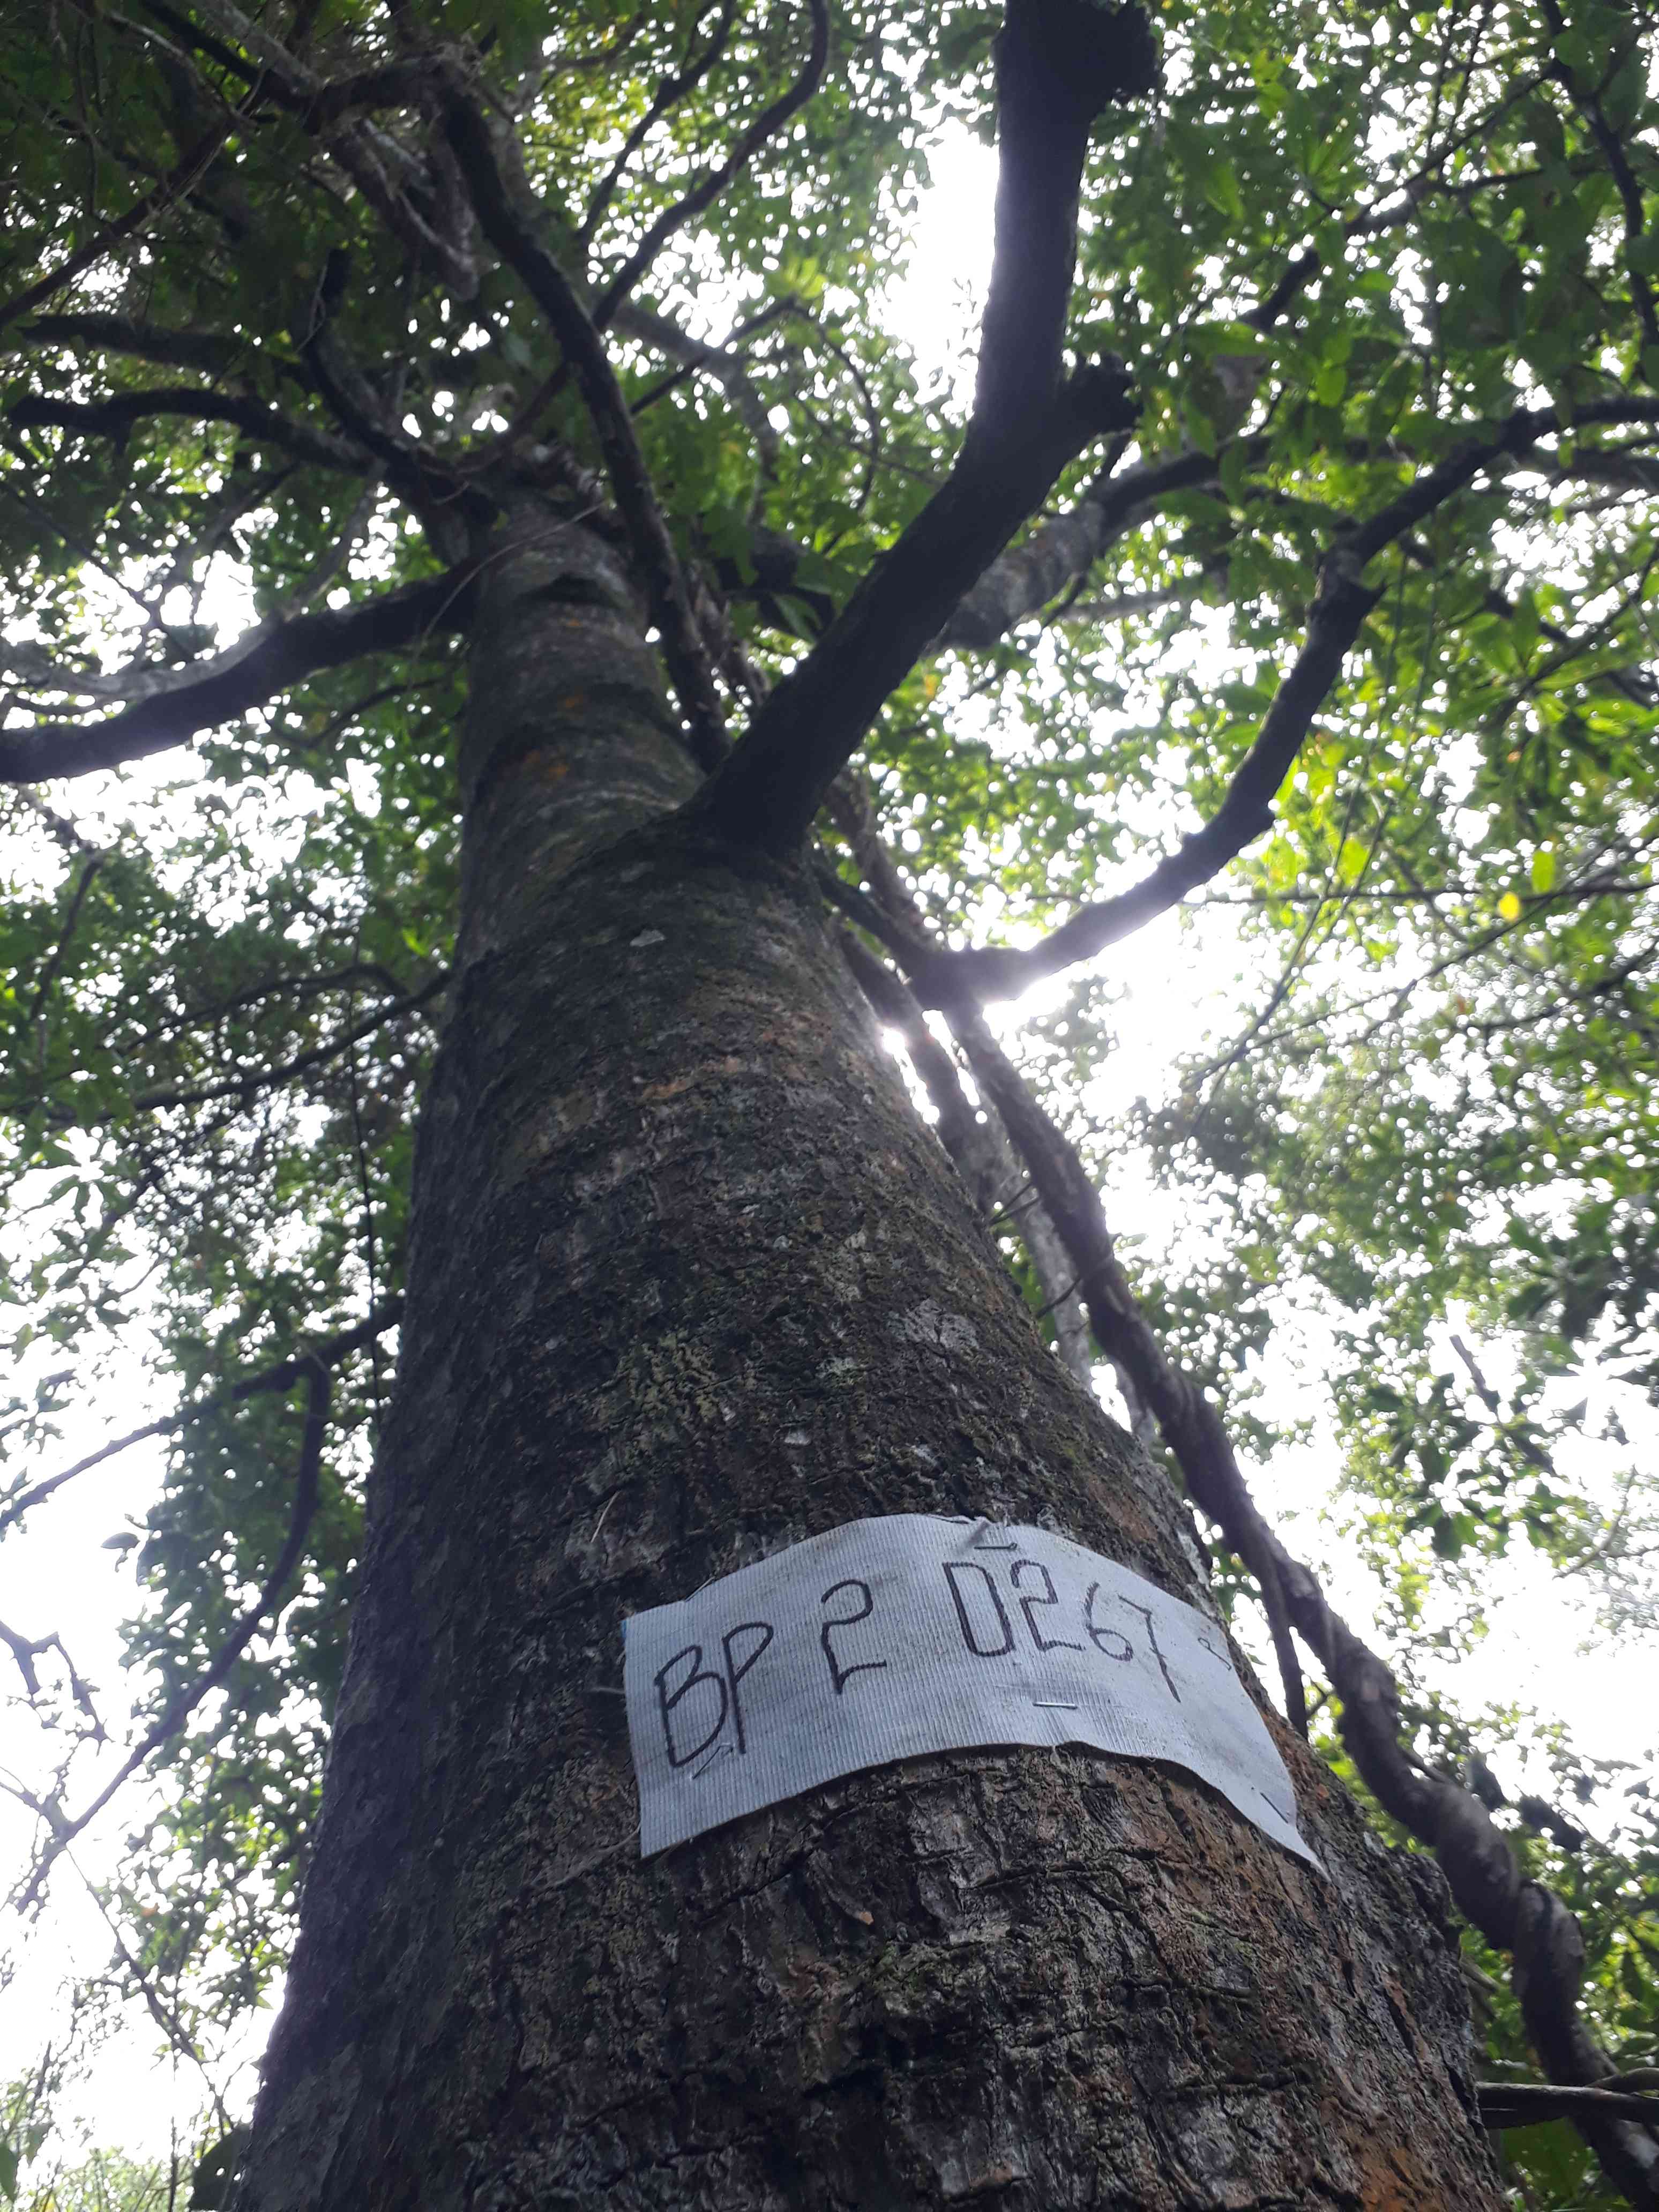 BP 2 D267